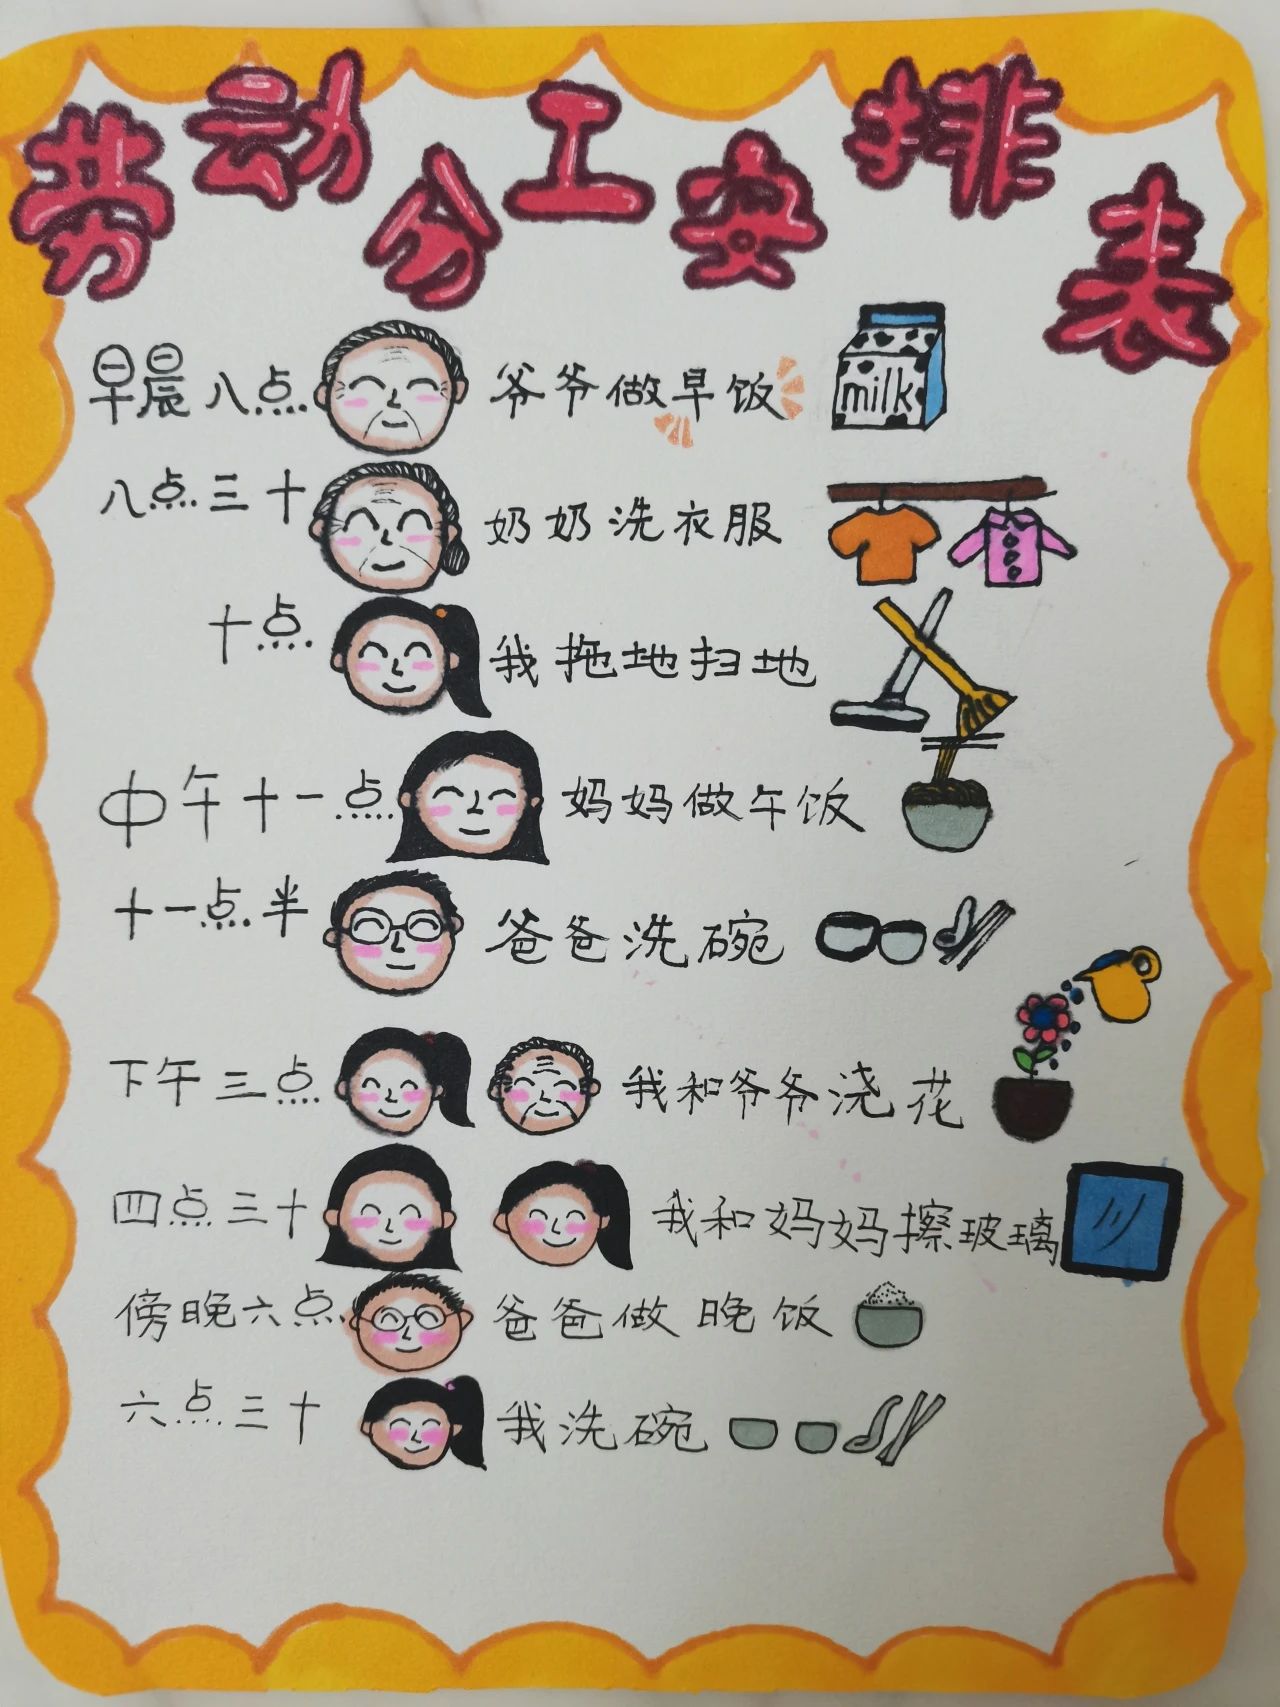 劳动分工安排表
早晨八点 爷爷做早饭 milk
八点三十 奶奶洗衣服
十点 我拖地扫地
中午十一点 妈妈做午饭
十一点半 爸爸洗碗
下午三点 我和爷爷浇花
四点三十 我和妈妈擦玻璃
傍晚六点 爸爸做晚饭
六点三十 我洗碗